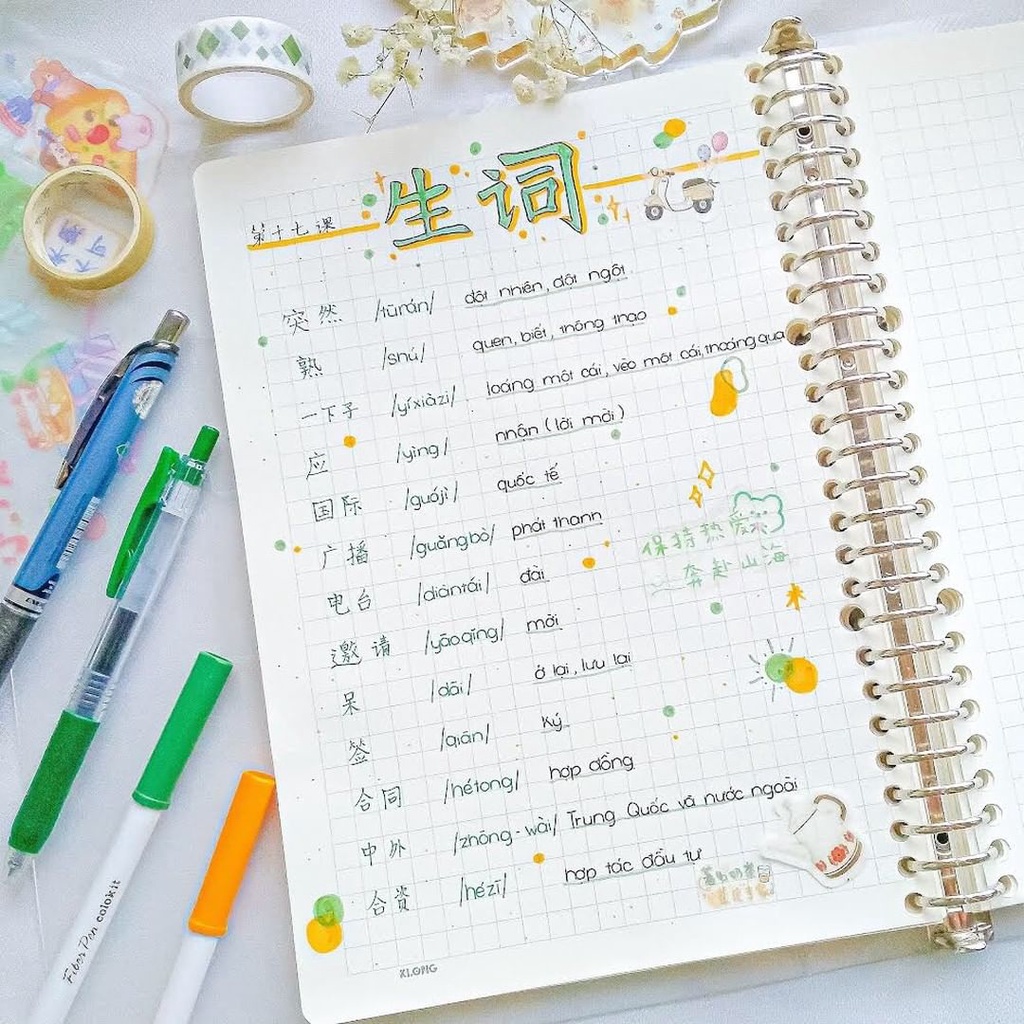 第十七课 生词
突然 /tūrán/ đột nhiên, đột ngột
熟 /shú/ quen, biết, thông thạo
一下子 /yíxiàzi/ loáng một cái, vèo một cái, thoáng qua
应 /yìng/ nhận (lời mời)
国际 /guójì/ quốc tế
广播 /guǎngbò/ phát thanh
电台 /diàntái/ đài
邀请 /yāoqǐng/ mời
呆 /dāi/ ở lại, lưu lại
签 /qiān/ ký
合同 /hétong/ hợp đồng
中外 /zhōng-wài/ Trung Quốc và nước ngoài
合资 /hézī/ hợp tác đầu tư
保持热爱
奔赴山海
KLONG
Fiber Pen colokit